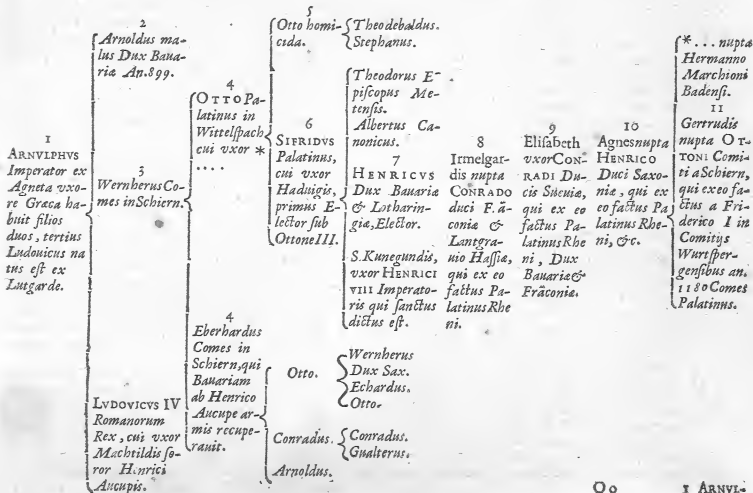 1
ARNVLPHVS
Imperator ex
Agneta vxo-
re Græca ha-
buit filios
duos, tertius
Ludouicus na
tus est ex
Lutgarde.
2
Arnoldus ma-
lus Dux Baua-
riæ An. 899.
3
Wernherus Co-
mes in Schiern.
LVDOVICVS IV
Romanorum
Rex, cui vxor
Machtildis so-
ror Henrici
Aucupis.
4
OTTO Pa-
latinus in
Wittelspach
cui vxor *
....
4
Eberhardus
Comes in
Schiern, qui
Bauariam
ab Henrico
Aucupe ar-
mis recupe-
rauit.
5
Otto homi-
cida.
6
SIFRIDVS
Palatinus,
cui vxor
Haduigis,
primus E-
lector sub
Ottone III.
Otto.
Conradus.
Arnoldus.
Theodebaldus.
Stephanus.
Theodorus E-
piscopus Me-
tensis.
Albertus Ca-
nonicus.
7
HENRICVS
Dux Bauariæ
& Lotharin-
giæ, Elector.
S. Kunegundis,
vxor HENRICI
VIII Imperato-
ris qui sanctus
dictus est.
Wernherus
Dux Sax.
Echardus.
Otto.
Conradus.
Gualterus.
8
Irmelgar-
dis nupta
CONRADO
duci Frã-
coniæ &
Lantgra-
uio Hassiæ,
qui ex eo
factus Pa-
latinus Rhe
ni.
9
Elisabeth
vxor CON-
RADI Du-
cis Sueuiæ,
qui ex eo
factus Pa-
latinus Rhe
ni, Dux
Bauariæ &
Frãconiæ.
10
Agnes nupta
HENRICO
Duci Saxo-
niæ, qui ex
eo factus Pa
latinus Rhe-
ni, &c.
* ... nupta
Hermanno
Marchioni
Badensi.
11
Gertrudis
nupta OT-
TONI Comi-
ti a Schiern,
qui ex eo fa-
ctus a Fri-
derico I in
Comitijs
Wurtsper-
gensibus an.
1180 Comes
Palatinus.
Oo
1 ARNVL-